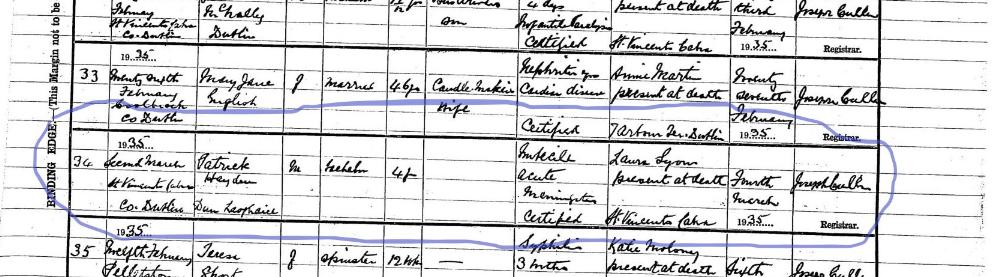 February Mc Nally son 4 days present at death third Joseph Cullen
St Vincents Cabra Dublin Infantile February
Co. Dublin Certified St. Vincents Cabra 1935 Registrar.
BINDING EDGE.—(This Margin not to be
1935
33 Twenty sixth Mary Jane F Married 46 yrs Candle Makers Nephritis yrs Annie Martin Twenty
February English Wife Cardiac disease present at death seventh Joseph Cullen
Coolock February
Co Dublin Certified 7 Arbour Ter. Dublin 1935 Registrar.
1935
34 Second March Patrick M Bachelor 4 yrs Imbecile Laura Lyons
St Vincents Cabra Hayden acute present at death Fourth Joseph Cullen
Meningitis March
Co. Dublin Dun Laoghaire Certified St. Vincents Cabra 1935 Registrar.
1935
35 Twelfth February Terese F Spinster 12 wks — Syphilis Katie Moloney
Pelletstown Short 3 mths present at death Sixth Joseph Cullen